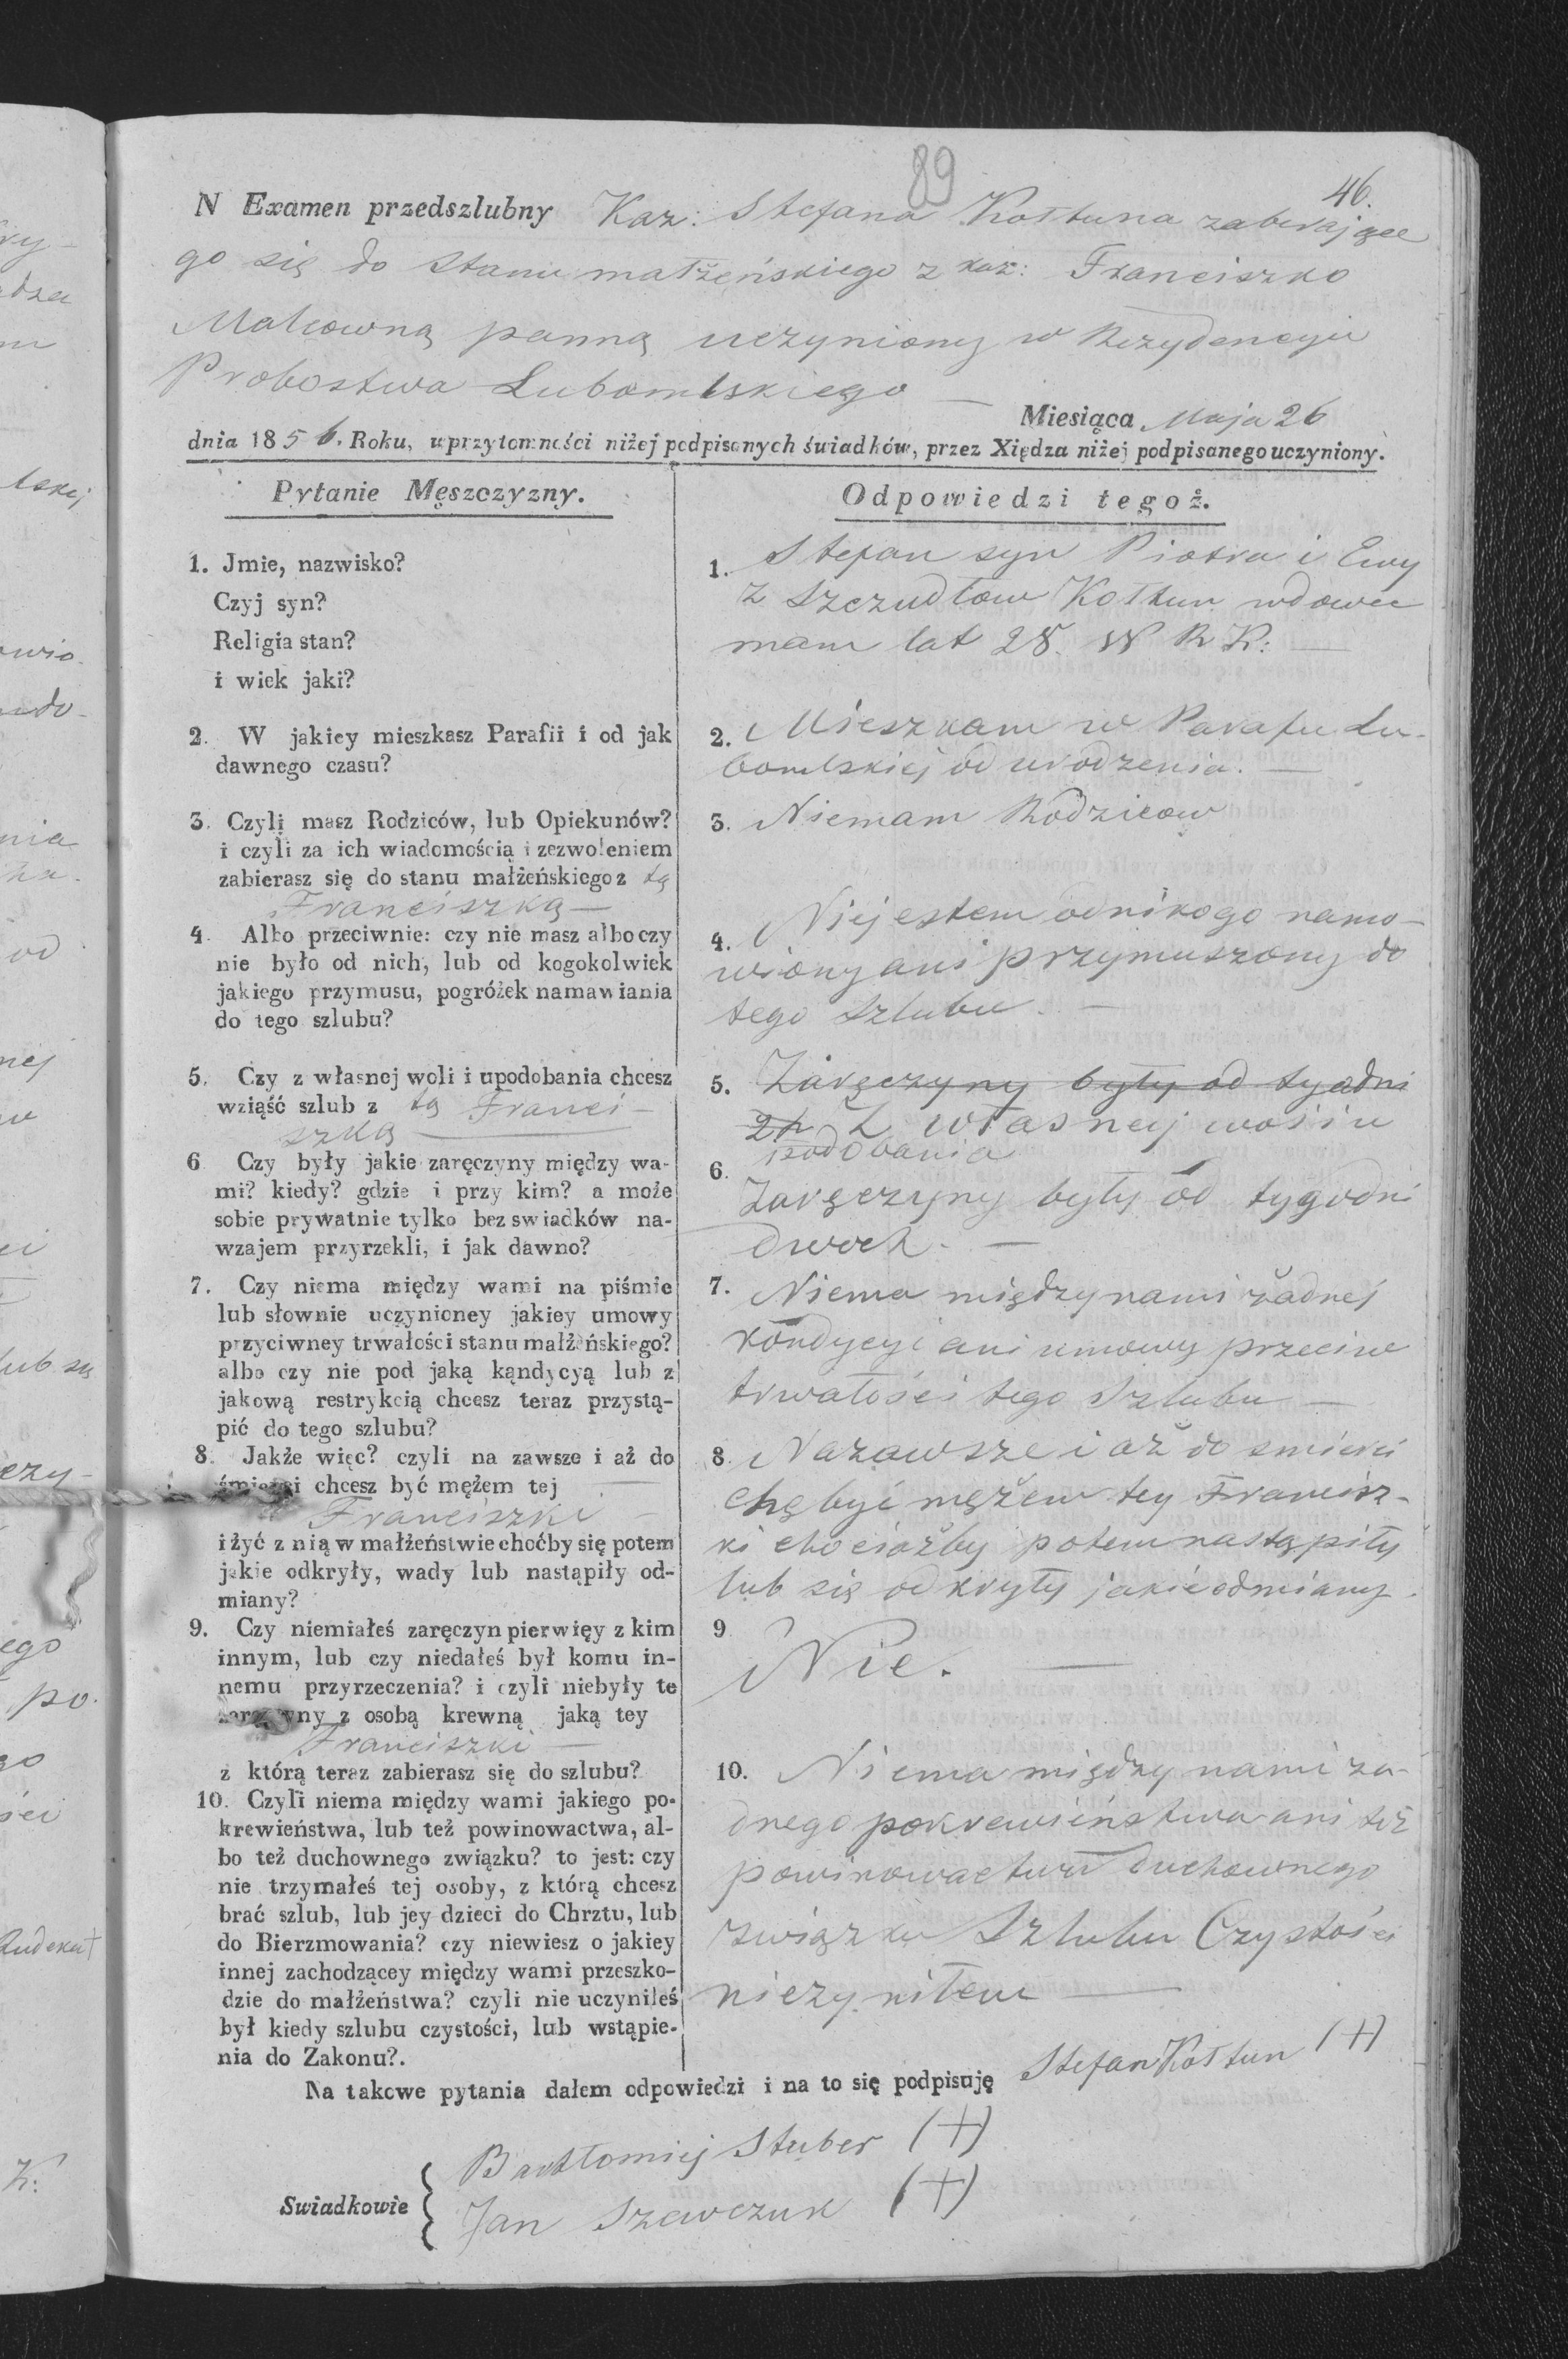 89
46.
N Examen przedszlubny Kaz: Stefana Kołtuna zabierające
go się do Stanu małżeńskiego z kaz: Franciszko
panną uczyniony w Rezydencyi
Probostwa Lubomlskiego —
Miesiąca Maja 26
dnia 1856. Roku, w przytomności niżej podpisanych świadków, przez Xiędza niżej podpisanego uczyniony.
Pytanie Męszczyzny.
1. Jmie, nazwisko?
Czyj syn?
Religia stan?
i wiek jaki?
2. W jakiey mieszkasz Parafii i od jak
dawnego czasu?
3. Czyli masz Rodziców, lub Opiekunów?
i czyli za ich wiadomością i zezwoleniem
zabierasz się do stanu małżeńskiego z tą
Franciszką —
4. Albo przeciwnie: czy nie masz albo czy
nie było od nich, lub od kogokolwiek
jakiego przymusu, pogróżek namawiania
do tego szlubu?
5. Czy z własnej woli i upodobania chcesz
wziąść szlub z tą Franci-
szką —
6 Czy były jakie zaręczyny między wa-
mi? kiedy? gdzie i przy kim? a może
sobie prywatnie tylko bez swiadków na-
wzajem przyrzekli, i jak dawno?
7. Czy niema między wami na piśmie
lub słownie uczynioney jakiey umowy
przyciwney trwałości stanu małżeńskiego?
albo czy nie pod jaką kąndycyą lub z
jakową restrykcią chcesz teraz przystą-
pić do tego szlubu?
8. Jakże więc? czyli na zawsze i aż do
śmierci chcesz być mężem tej
Franciszki —
i żyć z nią w małżeństwie choćby się potem
jakie odkryły, wady lub nastąpiły od-
miany?
9. Czy niemiałeś zaręczyn pierwięy z kim
innym, lub czy niedałeś był komu in-
nemu przyrzeczenia? i czyli niebyły te
zaręczyny z osobą krewną jaką tey
Franciszki —
z którą teraz zabierasz się do szlubu?
10. Czyli niema między wami jakiego po-
krewieństwa, lub też powinowactwa, al-
bo też duchownego związku? to jest: czy
nie trzymałeś tej osoby, z którą chcesz
brać szlub, lub jey dzieci do Chrztu, lub
do Bierzmowania? czy niewiesz o jakiey
innej zachodzącey między wami przeszko-
dzie do małżeństwa? czyli nie uczyniłeś
był kiedy szlubu czystości, lub wstąpie-
nia do Zakonu?.
Odpowiedzi tegoż.
1. Stefan syn Piotra i Ewy
z Szczudłow Kołtun wdowiec
mam lat 28. W R K: —
2. Mieszkam w Parafii Lu-
bomlskiej od urodzenia. —
3. Niemam Rodzicow
4. Niejestem odnikogo namo-
wiony ani przymuszony do
tego Szlubu. —
5. Zaręczyny były od tygodni
2ch Z własney woli i u
podobania
6. Zaręczyny były od tygodni
dwoch. —
7. Niema między nami żadnej
kondycyi ani umowy przeciw
trwałości tego Szlubu —
8. Nazawsze i aż do smierci
chcę być mężem tey Francisz-
ki chociażby potem nastąpiły
lub się odkryły jakie odmiany.
9. Nie. —
10. Niema między nami ża-
dnego pokrewieństwa ani też
powinowactwa duchownego
związku Szlubu Czystości
nieczyniłem —
Na takowe pytania dałem odpowiedzi i na to się podpisuję Stefan Kołtun (+)
Swiadkowie
Bartłomiej Stuber (+)
Jan Szewczuk (+)